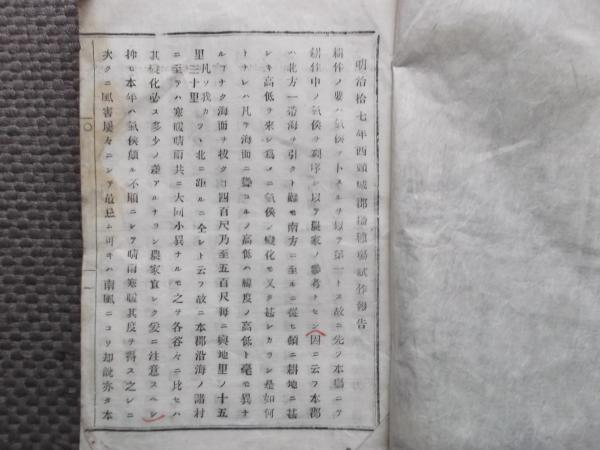 明治拾七年西頸城郡播種場試作報告
耕作ノ要ハ氣候ヲトスルヲ以テ第一トス故ニ先ツ本場ニテ
耕作中ノ氣侯ヲ列序シ以テ農家ノ參考トセン因ニ云フ本郡
ハ北方一帶海ヲ引クト雖モ南方ニ至ルニ從ヒ頓ニ耕地ニ甚
シキ高低ヲ來シ爲メニ氣侯ノ變化モ又タ甚シカラン是如何
トナレハ凡ソ海面ニ聳ユルノ高低ハ緯度ノ高低ト毫モ異ナ
ルヿナク海面ヲ拔クヿ四百尺乃至五百尺毎ニ輿地里ノ十五
里凡ソ我カ三十里ツヽ北ニ距ルニ全シト云フ故ニ本郡沿海ノ諸村
ニ至テハ寒暖晴雨共ニ大同小異ナルモ之ヲ各谷々ニ比セハ
其變化必ス多少ノ差アルナラン農家宜シク爰ニ注意スヘシ
抑モ本年ハ氣侯頗ル不順ニシテ晴雨寒暖其度ヲ得ス之レニ
次クニ風害屢々ニシテ最忌ム可キハ南風ニコリ却說亦タ本